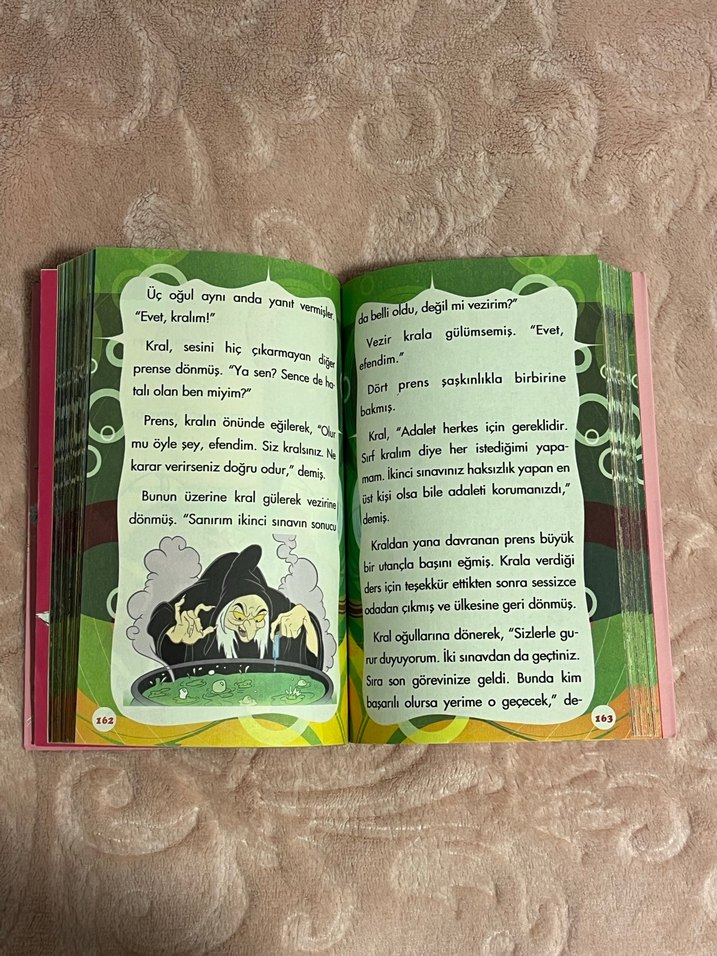 Üç oğul aynı anda yanıt vermişler.
“Evet, kralım!”
Kral, sesini hiç çıkarmayan diğer
prense dönmüş. “Ya sen? Sence de ha-
talı olan ben miyim?”
Prens, kralın önünde eğilerek, “Olur
mu öyle şey, efendim. Siz kralsınız. Ne
karar verirseniz doğru odur,” demiş.
Bunun üzerine kral gülerek vezirine
dönmüş. “Sanırım ikinci sınavın sonucu
162
da belli oldu, değil mi vezirim?”
Vezir krala gülümsemiş. “Evet,
efendim.”
Dört prens şaşkınlıkla birbirine
bakmış.
Kral, “Adalet herkes için gereklidir.
Sırf kralım diye her istediğimi yapa-
mam. İkinci sınavınız haksızlık yapan en
üst kişi olsa bile adaleti korumanızdı,”
demiş.
Kraldan yana davranan prens büyük
bir utançla başını eğmiş. Krala verdiği
ders için teşekkür ettikten sonra sessizce
odadan çıkmış ve ülkesine geri dönmüş.
Kral oğullarına dönerek, “Sizlerle gu-
rur duyuyorum. İki sınavdan da geçtiniz.
Sıra son görevinize geldi. Bunda kim
başarılı olursa yerime o geçecek,” de-
163